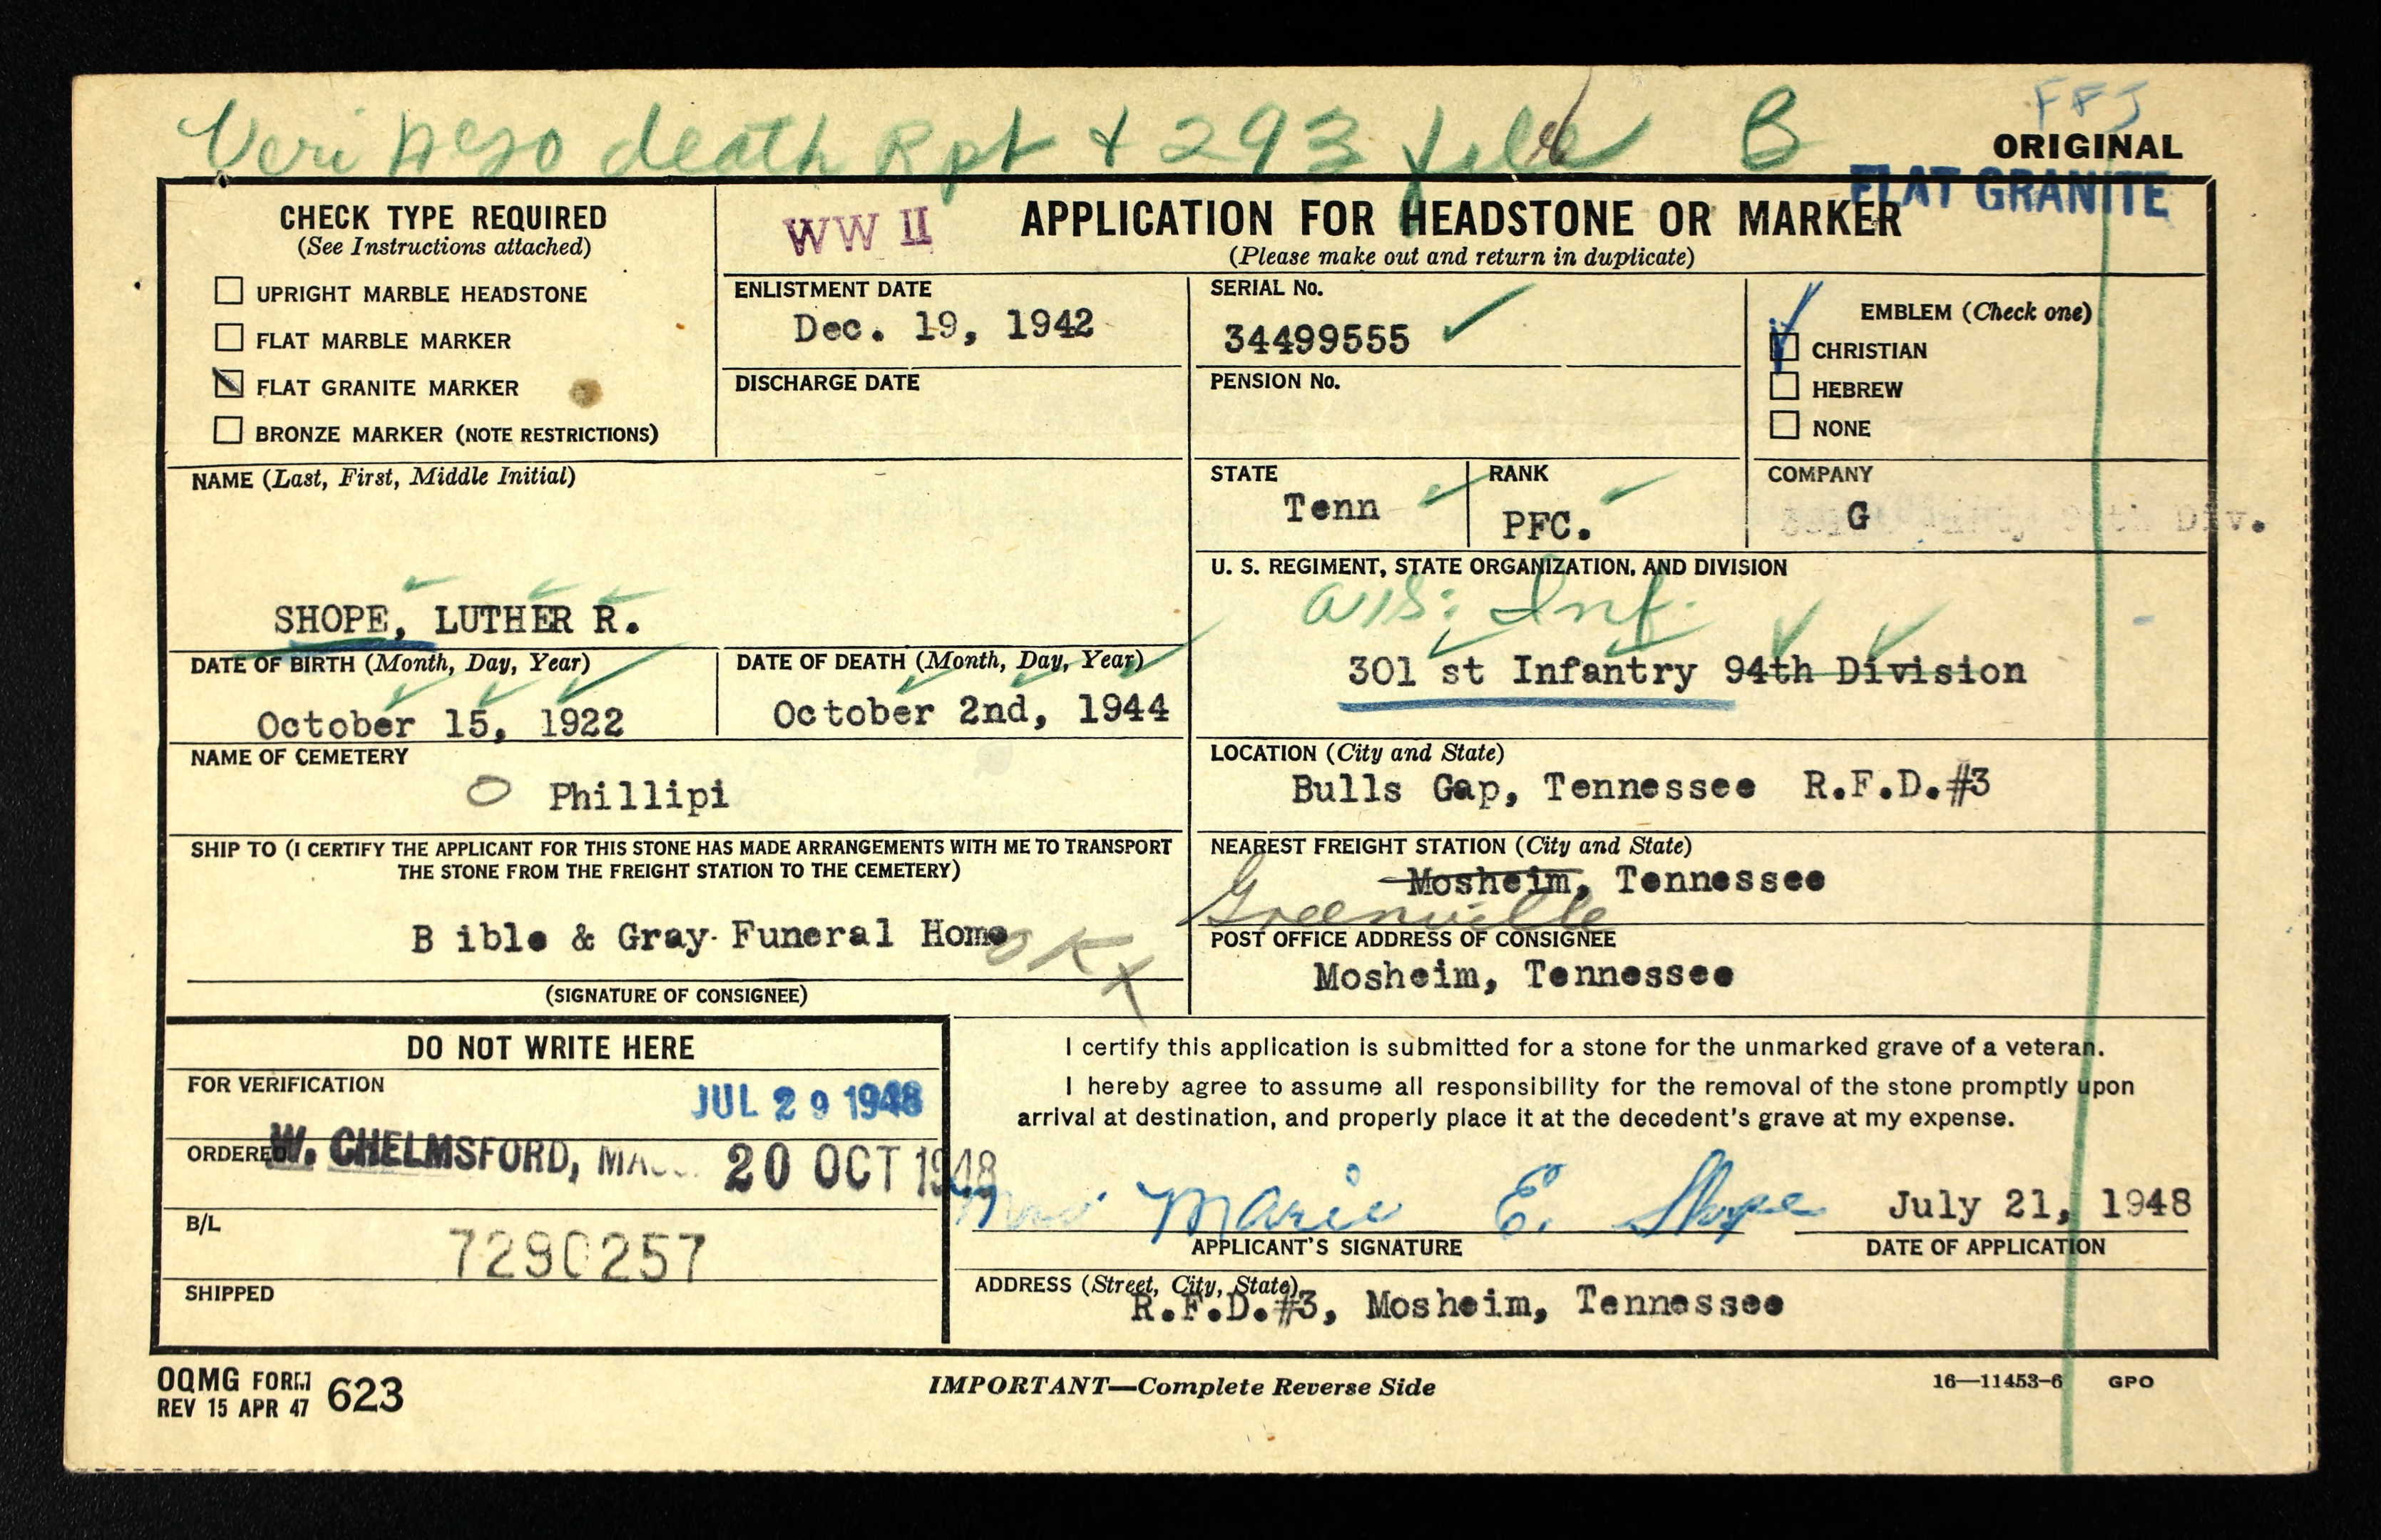 Veri death Rpt & 293 file B
FFJ
ORIGINAL
FLAT GRANITE
CHECK TYPE REQUIRED
(See Instructions attached)
UPRIGHT MARBLE HEADSTONE
FLAT MARBLE MARKER
FLAT GRANITE MARKER
BRONZE MARKER (NOTE RESTRICTIONS)
WW II
APPLICATION FOR HEADSTONE OR MARKER
(Please make out and return in duplicate)
ENLISTMENT DATE
Dec. 19, 1942
DISCHARGE DATE
SERIAL No.
34499555
PENSION No.
EMBLEM (Check one)
CHRISTIAN
HEBREW
NONE
NAME (Last, First, Middle Initial)
SHOPE, LUTHER R.
STATE
Tenn
RANK
PFC.
COMPANY
G
Div.
U. S. REGIMENT, STATE ORGANIZATION, AND DIVISION
Inf.
301 st Infantry 94th Division
DATE OF BIRTH (Month, Day, Year)
October 15, 1922
DATE OF DEATH (Month, Day, Year)
October 2nd, 1944
NAME OF CEMETERY
O Phillipi
LOCATION (City and State)
Bulls Gap, Tennessee R.F.D.#3
SHIP TO (I CERTIFY THE APPLICANT FOR THIS STONE HAS MADE ARRANGEMENTS WITH ME TO TRANSPORT
THE STONE FROM THE FREIGHT STATION TO THE CEMETERY)
B ible & Gray Funeral Home
OK
(SIGNATURE OF CONSIGNEE)
NEAREST FREIGHT STATION (City and State)
Mosheim, Tennessee
Greenville
POST OFFICE ADDRESS OF CONSIGNEE
Mosheim, Tennessee
DO NOT WRITE HERE
FOR VERIFICATION
JUL 29 1948
ORDERED
W. CHELMSFORD, MASS.
20 OCT 1948
B/L
7290257
SHIPPED
I certify this application is submitted for a stone for the unmarked grave of a veteran.
I hereby agree to assume all responsibility for the removal of the stone promptly upon
arrival at destination, and properly place it at the decedent's grave at my expense.
Mrs Marie E. Shope
July 21, 1948
APPLICANT'S SIGNATURE
DATE OF APPLICATION
ADDRESS (Street, City, State)
R.F.D.#3, Mosheim, Tennessee
OQMG FORM 623
REV 15 APR 47
IMPORTANT—Complete Reverse Side
16—11453-6 GPO